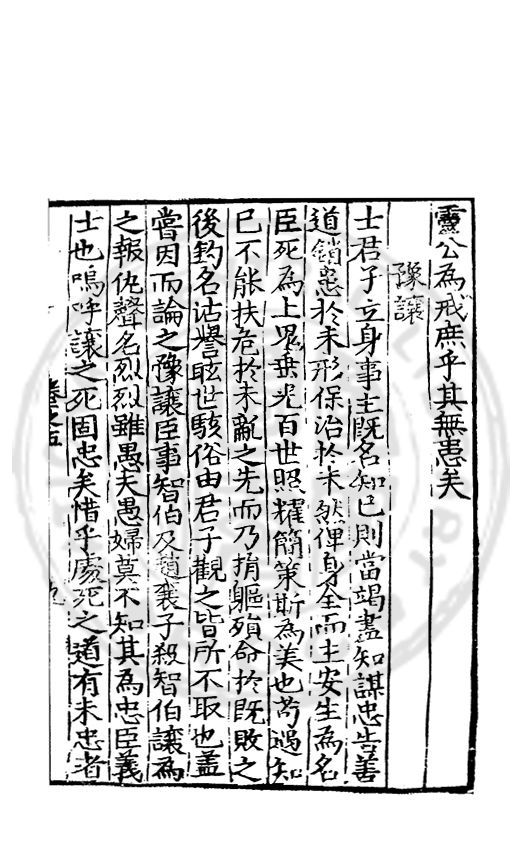 靈公為戒庶乎其無患矣
豫讓
士君子立身事主既名知己則當竭盡知謀忠告善
道銷患於未形保治於未然俾身全而主安生為名
臣死為上鬼垂光百世照耀簡策斯為美也苟遇知
已不能扶危於未亂之先而乃捐軀殞命於既敗之
後釣名沽譽眩世駭俗由君子觀之皆所不取也蓋
嘗因而論之豫讓臣事智伯及趙襄子殺智伯讓為
之報仇聲名烈烈雖愚夫愚婦莫不知其為忠臣義
士也嗚呼讓之死固忠矣惜乎處死之道有未忠者
卷之五
九